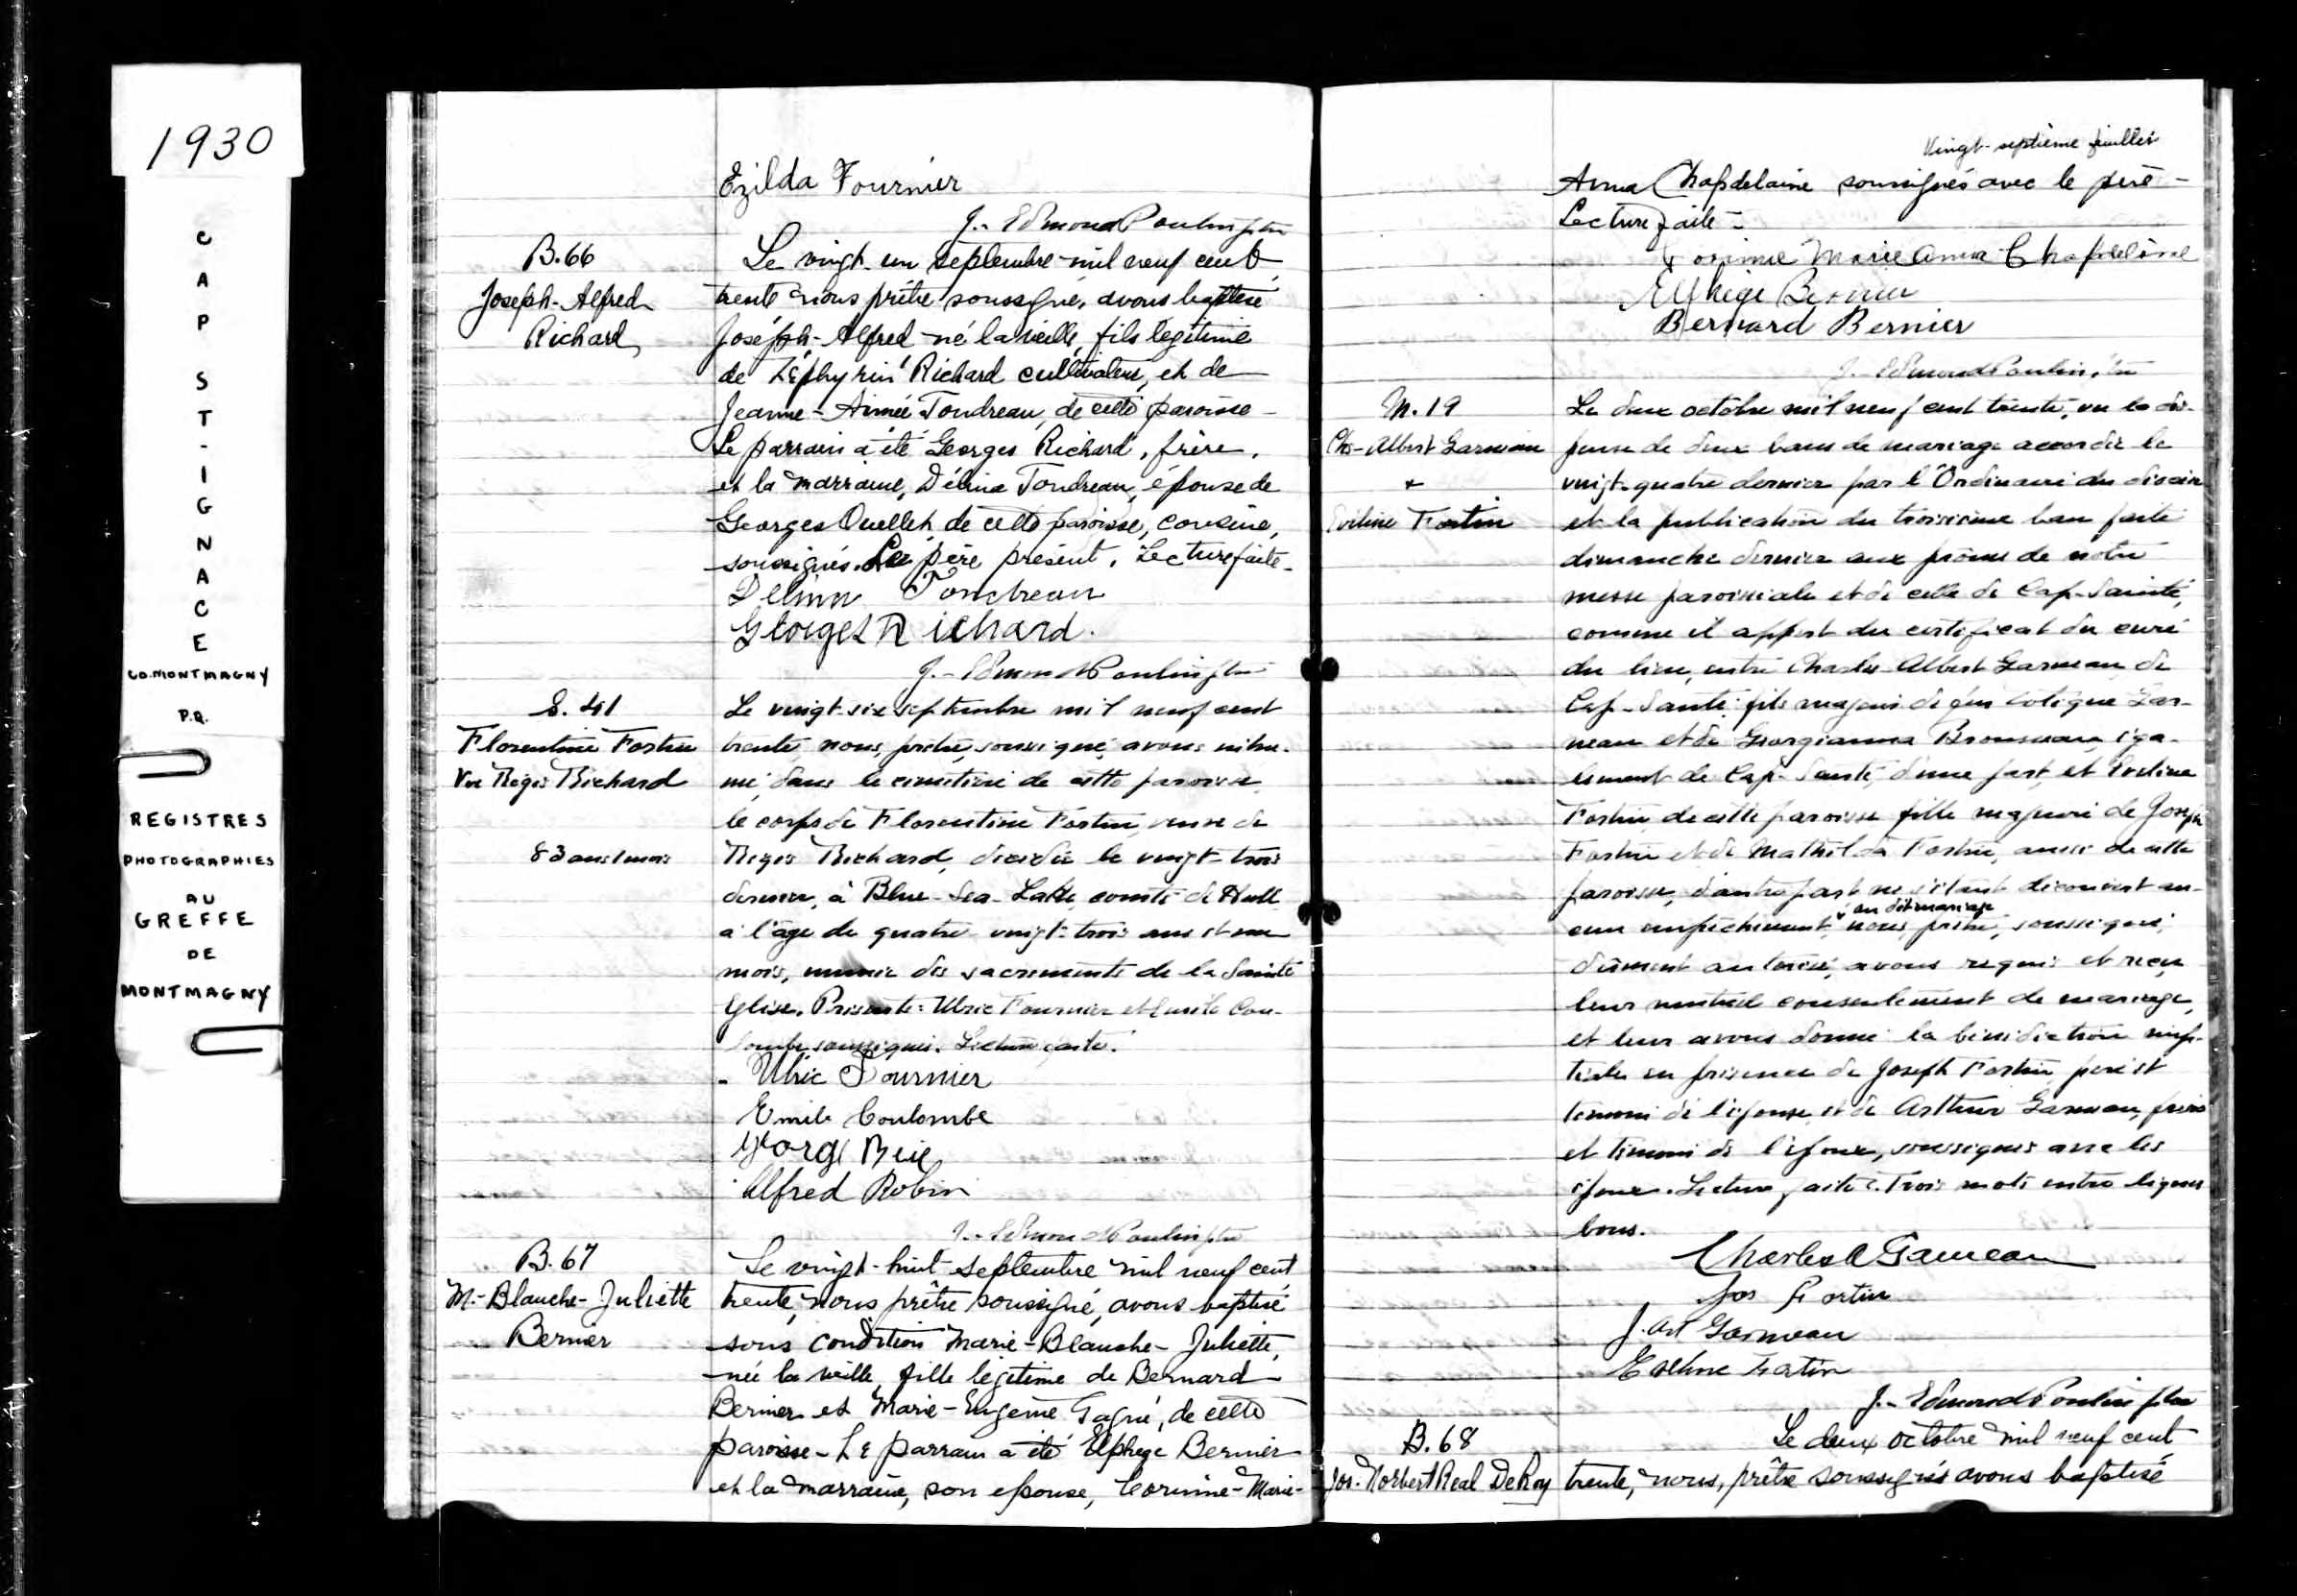 1930
CAP ST-IGNACE
CO. MONTMAGNY
P.Q.
REGISTRES
PHOTOGRAPHIES
AU
GREFFE
DE
MONTMAGNY
Ezilda Fournier
J.-Edmond Poulin ptre
B.66
Joseph-Alfred
Richard
Le vingt-un septembre mil neuf cent
trente nous prêtre soussigné, avons baptisé
Joseph-Alfred né la veille, fils légitime
de Zéphyrin Richard cultivateur, et de
Jeanne-Aimée Tondreau, de cette paroisse-
Le parrain a été Georges Richard, frère,
et la marraine, Délima Tondreau, épouse de
Georges Ouellet, de cette paroisse, cousine,
soussignés. Le père présent. Lecture faite-
Delima Tondreau
Georges Richard.
J.-Edmond Poulin ptre
S. 41
Florentine Fortin
Vve Régis Richard
83 ans 1 mois
Le vingt-six septembre mil neuf cent
trente, nous, prêtre, soussigné, avons inhu-
mé, dans le cimetière de cette paroisse,
le corps de Florentine Fortin, veuve de
Régis Richard, décédée le vingt-trois
dernier, à Blue-Sea-Lake, comté de Hull
à l'âge de quatre-vingt-trois ans et un
mois, munie des sacrements de la Sainte
Eglise. Présents: Ulric Fournier et Emile Cou-
lombe, soussignés. Lecture faite.
Ulric Fournier
Emile Coulombe
Alfred Robin
J.-Edmond Poulin ptre
B.67
M.-Blanche-Juliette
Bernier
Le vingt-huit septembre mil neuf cent
trente, nous prêtre soussigné, avons baptisé
sous condition Marie-Blanche-Juliette,
née la veille, fille légitime de Bernard
Bernier et Marie-Eugénie Gagné, de cette
paroisse- Le parrain a été Elphège Bernier
et la marraine, son épouse, Corinne-Marie-
Vingt-septième feuillet
Anna Chapdelaine soussignés avec le père-
Lecture faite-
Corinne Marie Anna Chapdelaine
Elphège Bernier
Bernard Bernier
J.-Edmond Poulin, ptre
M.19
Chs-Albert Garneau
&
Eveline Fortin
Le deux octobre mil neuf cent trente, vu la dis-
pense de deux bans de mariage accordée le
vingt-quatre dernier par l'Ordinaire du diocèse
et la publication du troisième ban faite
dimanche dernier aux prônes de notre
messe paroissiale et de celle de Cap-Santé,
comme il appert du certificat du curé
du lieu, entre Charles-Albert Garneau de
Cap-Santé, fils majeur de feu Gar-
neau et de Georgianna Brousseau, éga-
lement de Cap-Santé, d'une part, et Eveline
Fortin de cette paroisse fille majeure de Joseph
Fortin et de Mathilda Fortin, aussi de cette
paroisse, d'autre part, ne s'étant découvert au-
cun empêchement, au dit mariage nous, prêtre, soussigné,
dûment autorisé, avons requis et reçu
leur mutuel consentement de mariage,
et leur avons donné la bénédiction nup-
tiale en présence de Joseph Fortin, père et
témoin de l'épouse, et de Arthur Garneau, frère
et témoin de l'époux, soussignés avec les
époux. Lecture faite. Trois mots entre lignes
bons.
Charles A Garneau
Jos Fortin
J. Art Garneau
Eveline Fortin
J.-Edmond Poulin ptre
B.68
Jos.-Norbert Real DeRoy
Le deux octobre mil neuf cent
trente, nous, prêtre soussignés avons baptisé